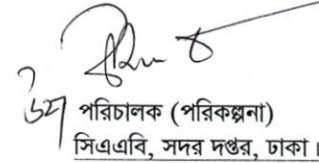 উপ পরিচালক (পরিকল্পনা)
সিএএবি, সদর দপ্তর, ঢাকা।